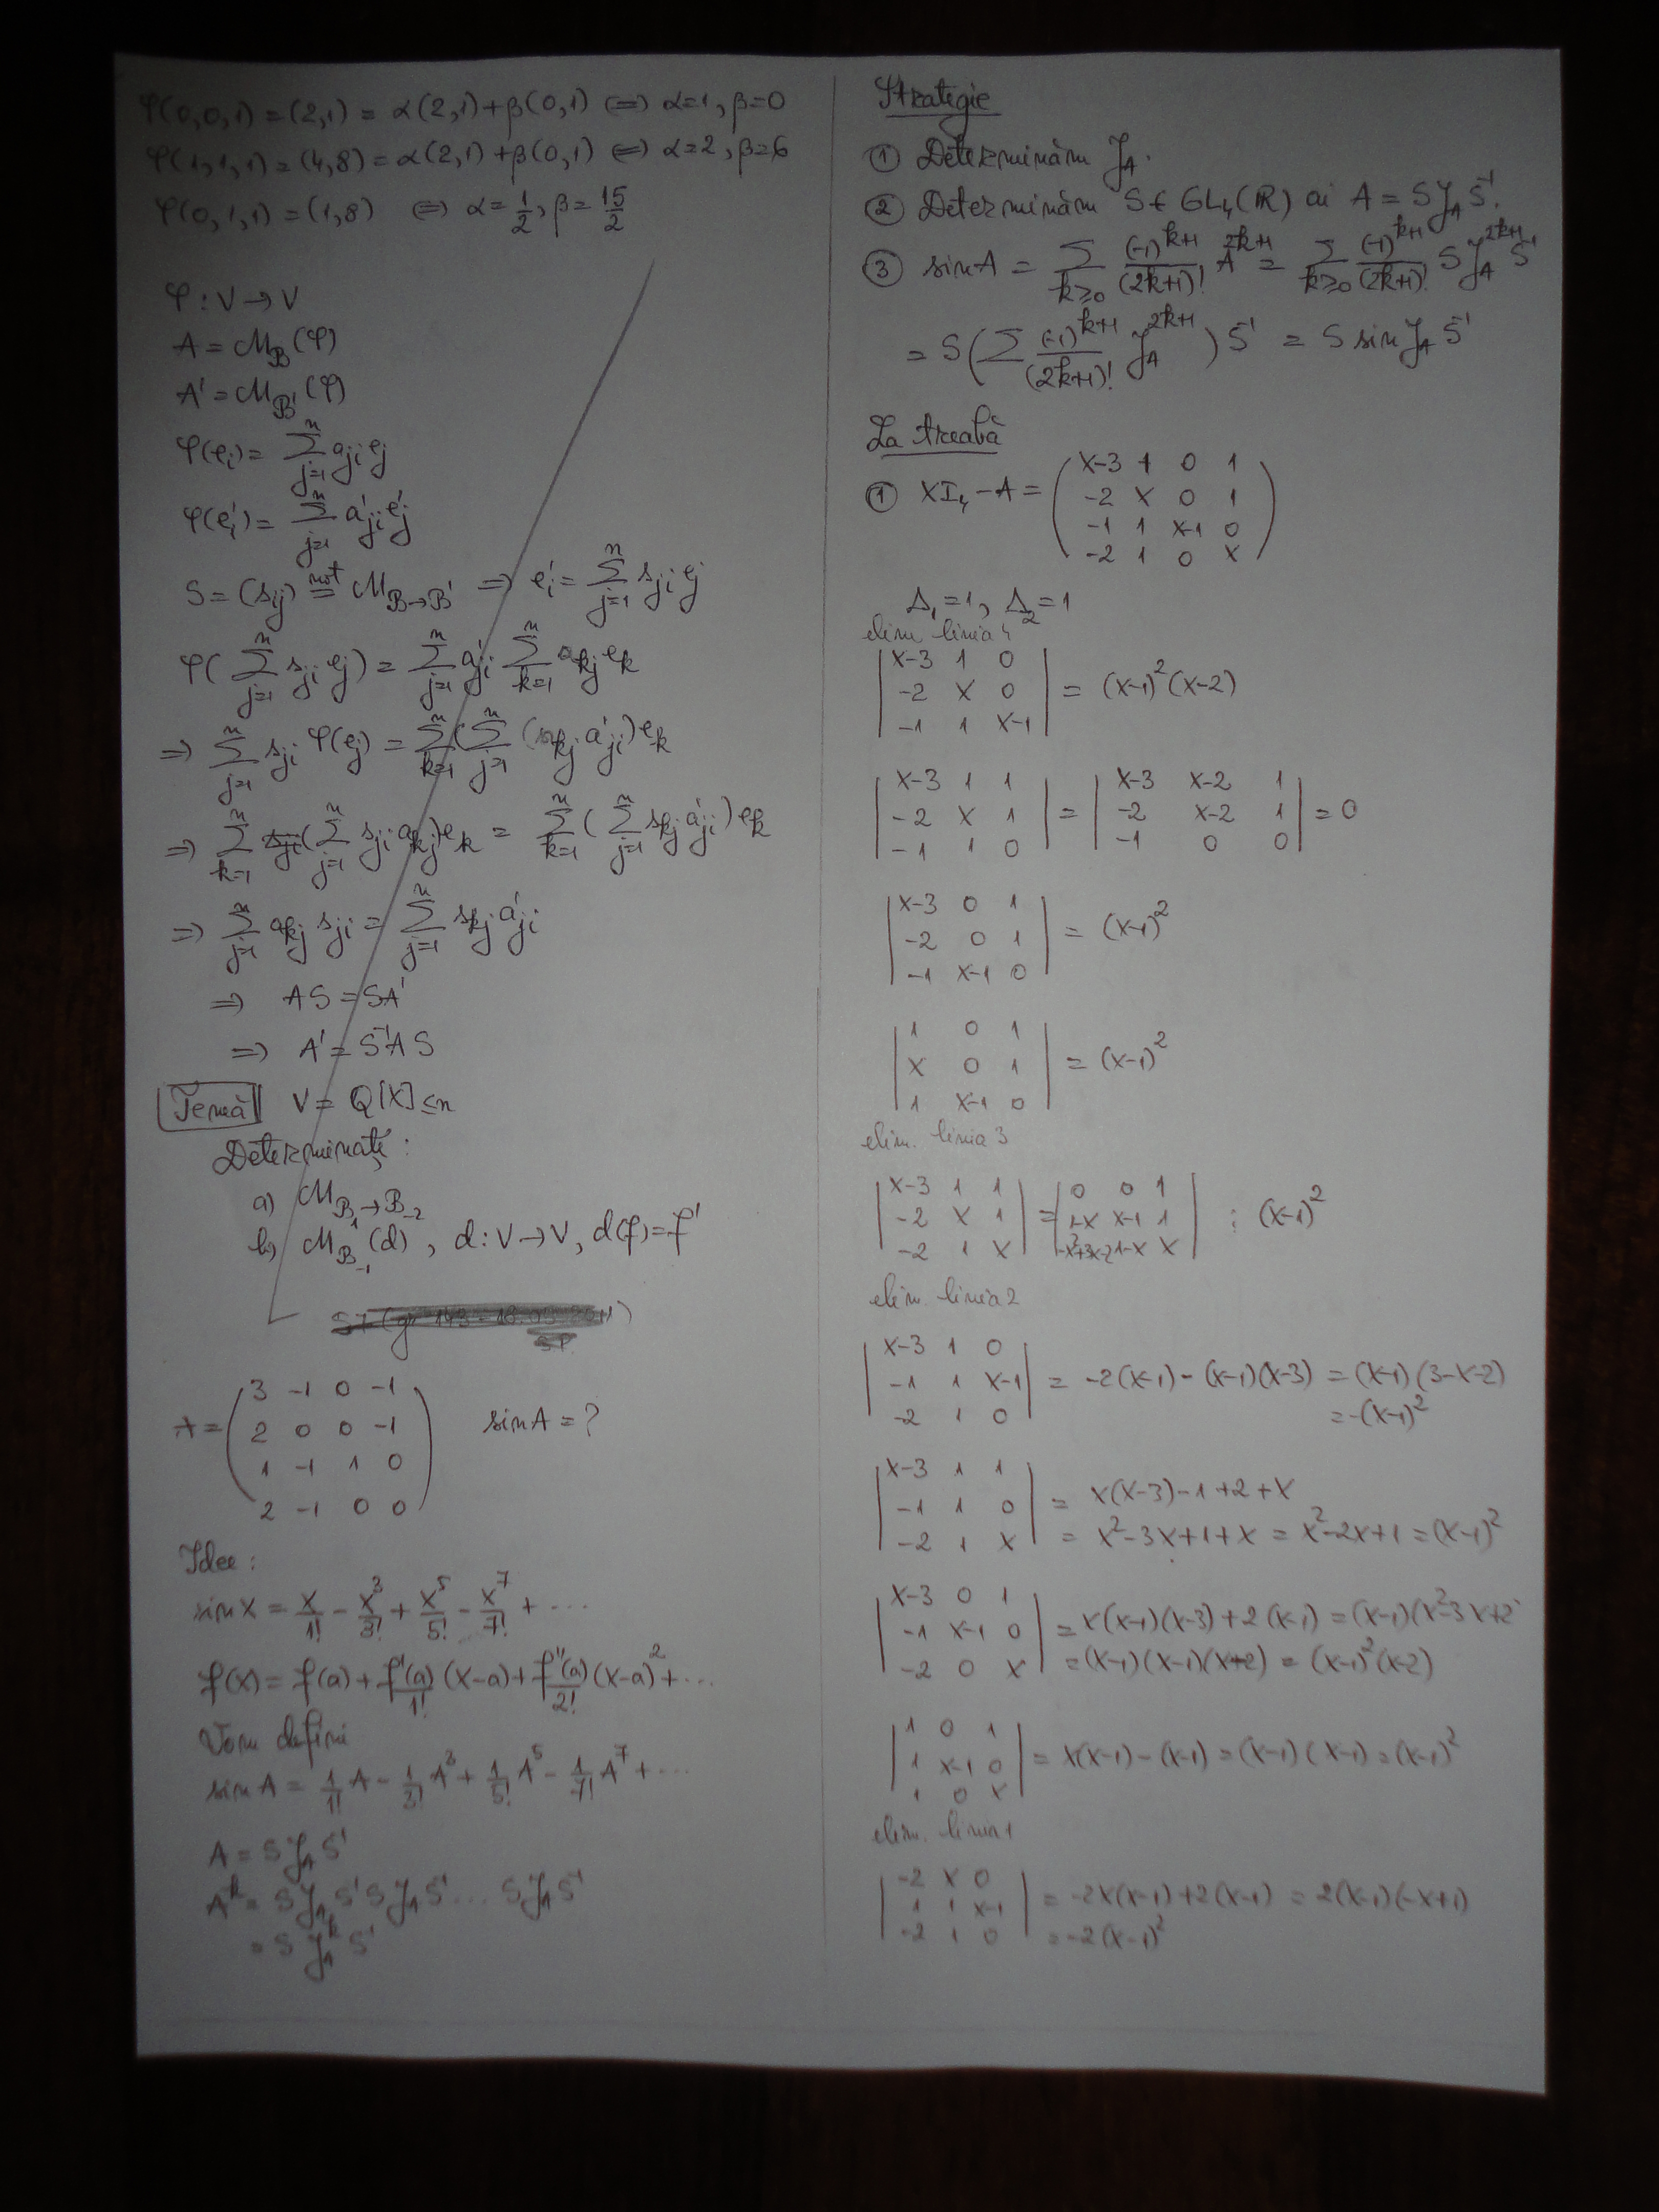 φ(0,0,1) = (2,1) = α(2,1)+β(0,1) ⟺ α=1, β=0
φ(1,1,1) = (4,8) = α(2,1)+β(0,1) ⟺ α=2, β=6
φ(0,1,1) = (1,8) ⟺ α=1/2, β=15/2
φ: V → V
A = M_B(φ)
A' = M_B'(φ)
φ(e_i) = Σ_{j=1}^n a_ji e_j
φ(e'_i) = Σ_{j=1}^n a'_ji e'_j
S = (s_ij) not= M_{B→B'} ⇒ e'_i = Σ_{j=1}^n s_ji e_j
φ(Σ_{j=1}^n s_ji e_j) = Σ_{j=1}^n a'_ji Σ_{k=1}^n a_kj e_k
⇒ Σ_{j=1}^n s_ji φ(e_j) = Σ_{k=1}^n (Σ_{j=1}^n (s_kj a'_ji) e_k
⇒ Σ_{k=1}^n (Σ_{j=1}^n s_ji a_kj) e_k = Σ_{k=1}^n (Σ_{j=1}^n s_kj a'_ji) e_k
⇒ Σ_{j=1}^n a_kj s_ji = Σ_{j=1}^n s_kj a'_ji
⇒ AS = SA'
⇒ A' = S^{-1}AS
Temă V = Q[X]≤n
Determinați:
a) M_{B_1→B_{-2}}
b) M_{B_{-1}}(d), d: V → V, d(f) = f'
A = (3 -1 0 -1
2 0 0 -1
1 -1 1 0
2 -1 0 0) sin A = ?
Idee:
sin x = x/1! - x^3/3! + x^5/5! - x^7/7! + ...
f(x) = f(a) + f'(a)/1! (x-a) + f''(a)/2! (x-a)^2 + ...
Vom defini
sin A = 1/1! A - 1/3! A^3 + 1/5! A^5 - 1/7! A^7 + ...
A = S J_A S^{-1}
A^k = S J_A S^{-1} S J_A S^{-1} ... S J_A S^{-1}
= S J_A^k S^{-1}
Strategie
① Determinăm J_A.
② Determinăm S ∈ GL_4(R) ai A = S J_A S^{-1}.
③ sin A = Σ_{k≥0} (-1)^{k+1}/(2k+1)! A^{2k+1} = Σ_{k≥0} (-1)^{k+1}/(2k+1)! S J_A^{2k+1} S^{-1}
= S(Σ (-1)^{k+1}/(2k+1)! J_A^{2k+1}) S^{-1} = S sin J_A S^{-1}
La treabă
① XI_4 - A = (X-3 1 0 1
-2 X 0 1
-1 1 X-1 0
-2 1 0 X)
Δ_1 = 1, Δ_2 = 1
elim linia 4
|X-3 1 0
-2 X 0
-1 1 X-1| = (X-1)^2(X-2)
|X-3 1 1
-2 X 1
-1 1 0| = |X-3 X-2 1
-2 X-2 1
-1 0 0| = 0
|X-3 0 1
-2 0 1
-1 X-1 0| = (X-1)^2
|1 0 1
X 0 1
1 X-1 0| = (X-1)^2
elim. linia 3
|X-3 1 1
-2 X 1
-2 1 X| = |0 0 1
1-X X-1 1
-X^2+3X-2 1-X X| ⋮ (X-1)^2
elim. linia 2
|X-3 1 0
-1 1 X-1
-2 1 0| = -2(X-1) - (X-1)(X-3) = (X-1)(3-X-2)
= -(X-1)^2
|X-3 1 1
-1 1 0
-2 1 X| = X(X-3)-1+2+X
= X^2-3X+1+X = X^2-2X+1 = (X-1)^2
|X-3 0 1
-1 X-1 0
-2 0 X| = X(X-1)(X-3)+2(X-1) = (X-1)(X^2-3X+2)
= (X-1)(X-1)(X-2) = (X-1)^2(X-2)
|1 0 1
1 X-1 0
1 0 X| = X(X-1)-(X-1) = (X-1)(X-1) = (X-1)^2
elim. linia 1
|-2 X 0
-1 1 X-1
-2 1 0| = -2X(X-1)+2(X-1) = 2(X-1)(-X+1)
= -2(X-1)^2